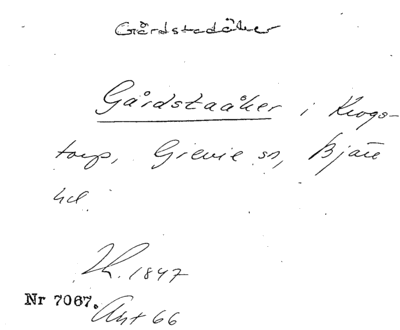 Gårdstadåker
Gårdstaåker i Krogs-
torp, Grevie sn, Bjäre
hd
Lh. 1847
Nr 7067.
Akt 66